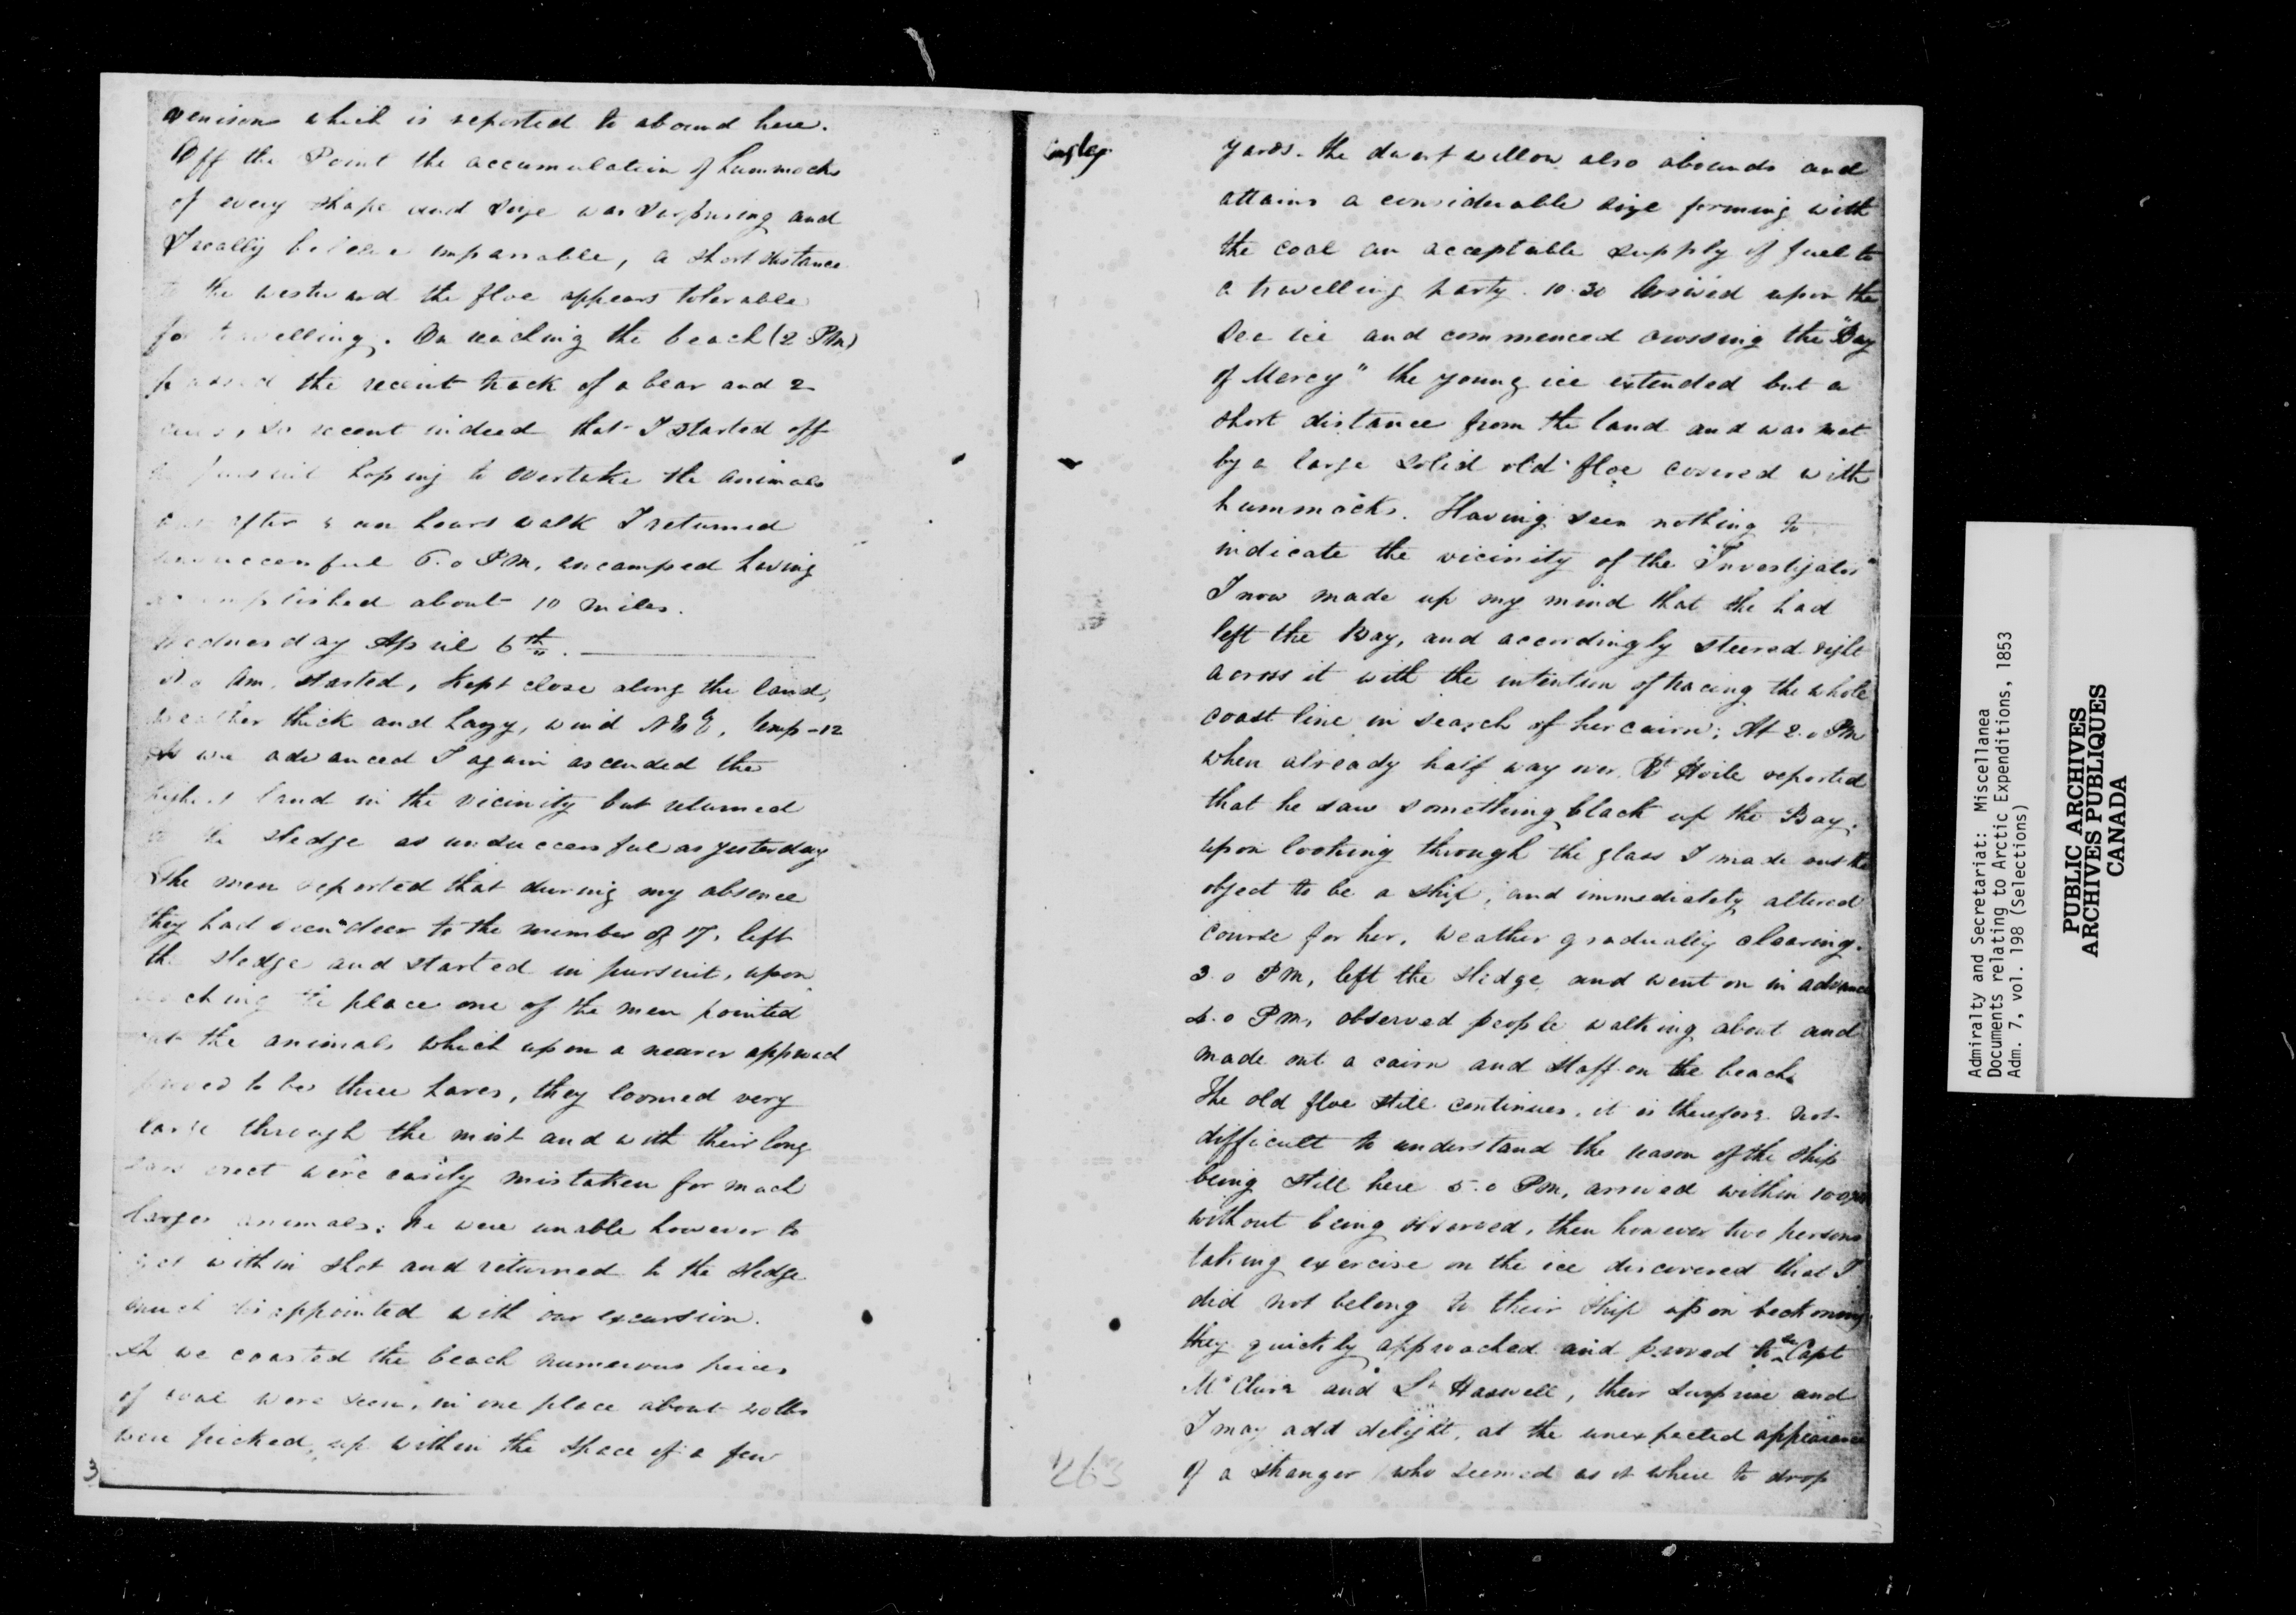 venison which is reported to abound here.
Off the Point the accumulation of hummocks
of every shape and size was surprising and
I really believe impassable, a short distance
to the westward the floe appears tolerable
for travelling. On reaching the beach (2 PM)
passed the recent track of a bear and 2
cubs, so recent indeed that I started off
in pursuit hoping to overtake the animals
but after an hours walk I returned
unsuccessful 6.0 PM, encamped having
accomplished about 10 miles.
Wednesday April 6th.
Am. started, kept close along the land,
weather thick and hazy, wind Temp -12
As we advanced I again ascended the
highest land in the vicinity but returned
to the sledge as unsuccessful as yesterday
The men reported that during my absence
they had seen deer to the number of 17, left
the sledge and started in pursuit, upon
reaching the place one of the men pointed
out the animals which upon a nearer approach
proved to be three hares, they loomed very
large through the mist and with their long
ears erect were easily mistaken for much
larger animals; we were unable however to
get within shot and returned to the sledge
much disappointed with our excursion.
As we coasted the beach numerous pieces
of coal were seen, in one place about 20 lbs
were picked up within the space of a few
3
yards. the dwarf willow also abounds and
attains a considerable size forming with
the coal an acceptable supply of fuel to
a travelling party. 10.30 Arrived upon the
sea ice and commenced crossing the "Bay
of Mercy" the young ice extended but a
short distance from the land and was met
by a large solid old floe covered with
hummocks. Having seen nothing to
indicate the vicinity of the "Investigator"
I now made up my mind that she had
left the Bay, and accordingly steered right
across it with the intention of tracing the whole
coast line in search of her cairn; At 2.0 PM
when already half way over Rt Hoile reported
that he saw something black up the Bay,
upon looking through the glass I made out the
object to be a ship, and immediately altered
course for her, weather gradually clearing.
3.0 PM, left the sledge and went on in advance
4.0 PM, observed people walking about and
made out a cairn and staff on the beach.
The old floe still continues, it is therefore not
difficult to understand the reason of the ship
being still here 5.0 PM, arrived within 100 yds
without being observed, then however two persons
taking exercise on the ice discovered that I
did not belong to their ship upon beckoning
they quickly approached and proved to be Capt
McClure and Lt Haswell, their surprise and
I may add delight, at the unexpected appearance
of a stranger (who seemed as it where to drop
263
Admiralty and Secretariat: Miscellanea
Documents relating to Arctic Expenditions, 1853
Adm. 7, vol. 198 (Selections)
PUBLIC ARCHIVES
ARCHIVES PUBLIQUES
CANADA